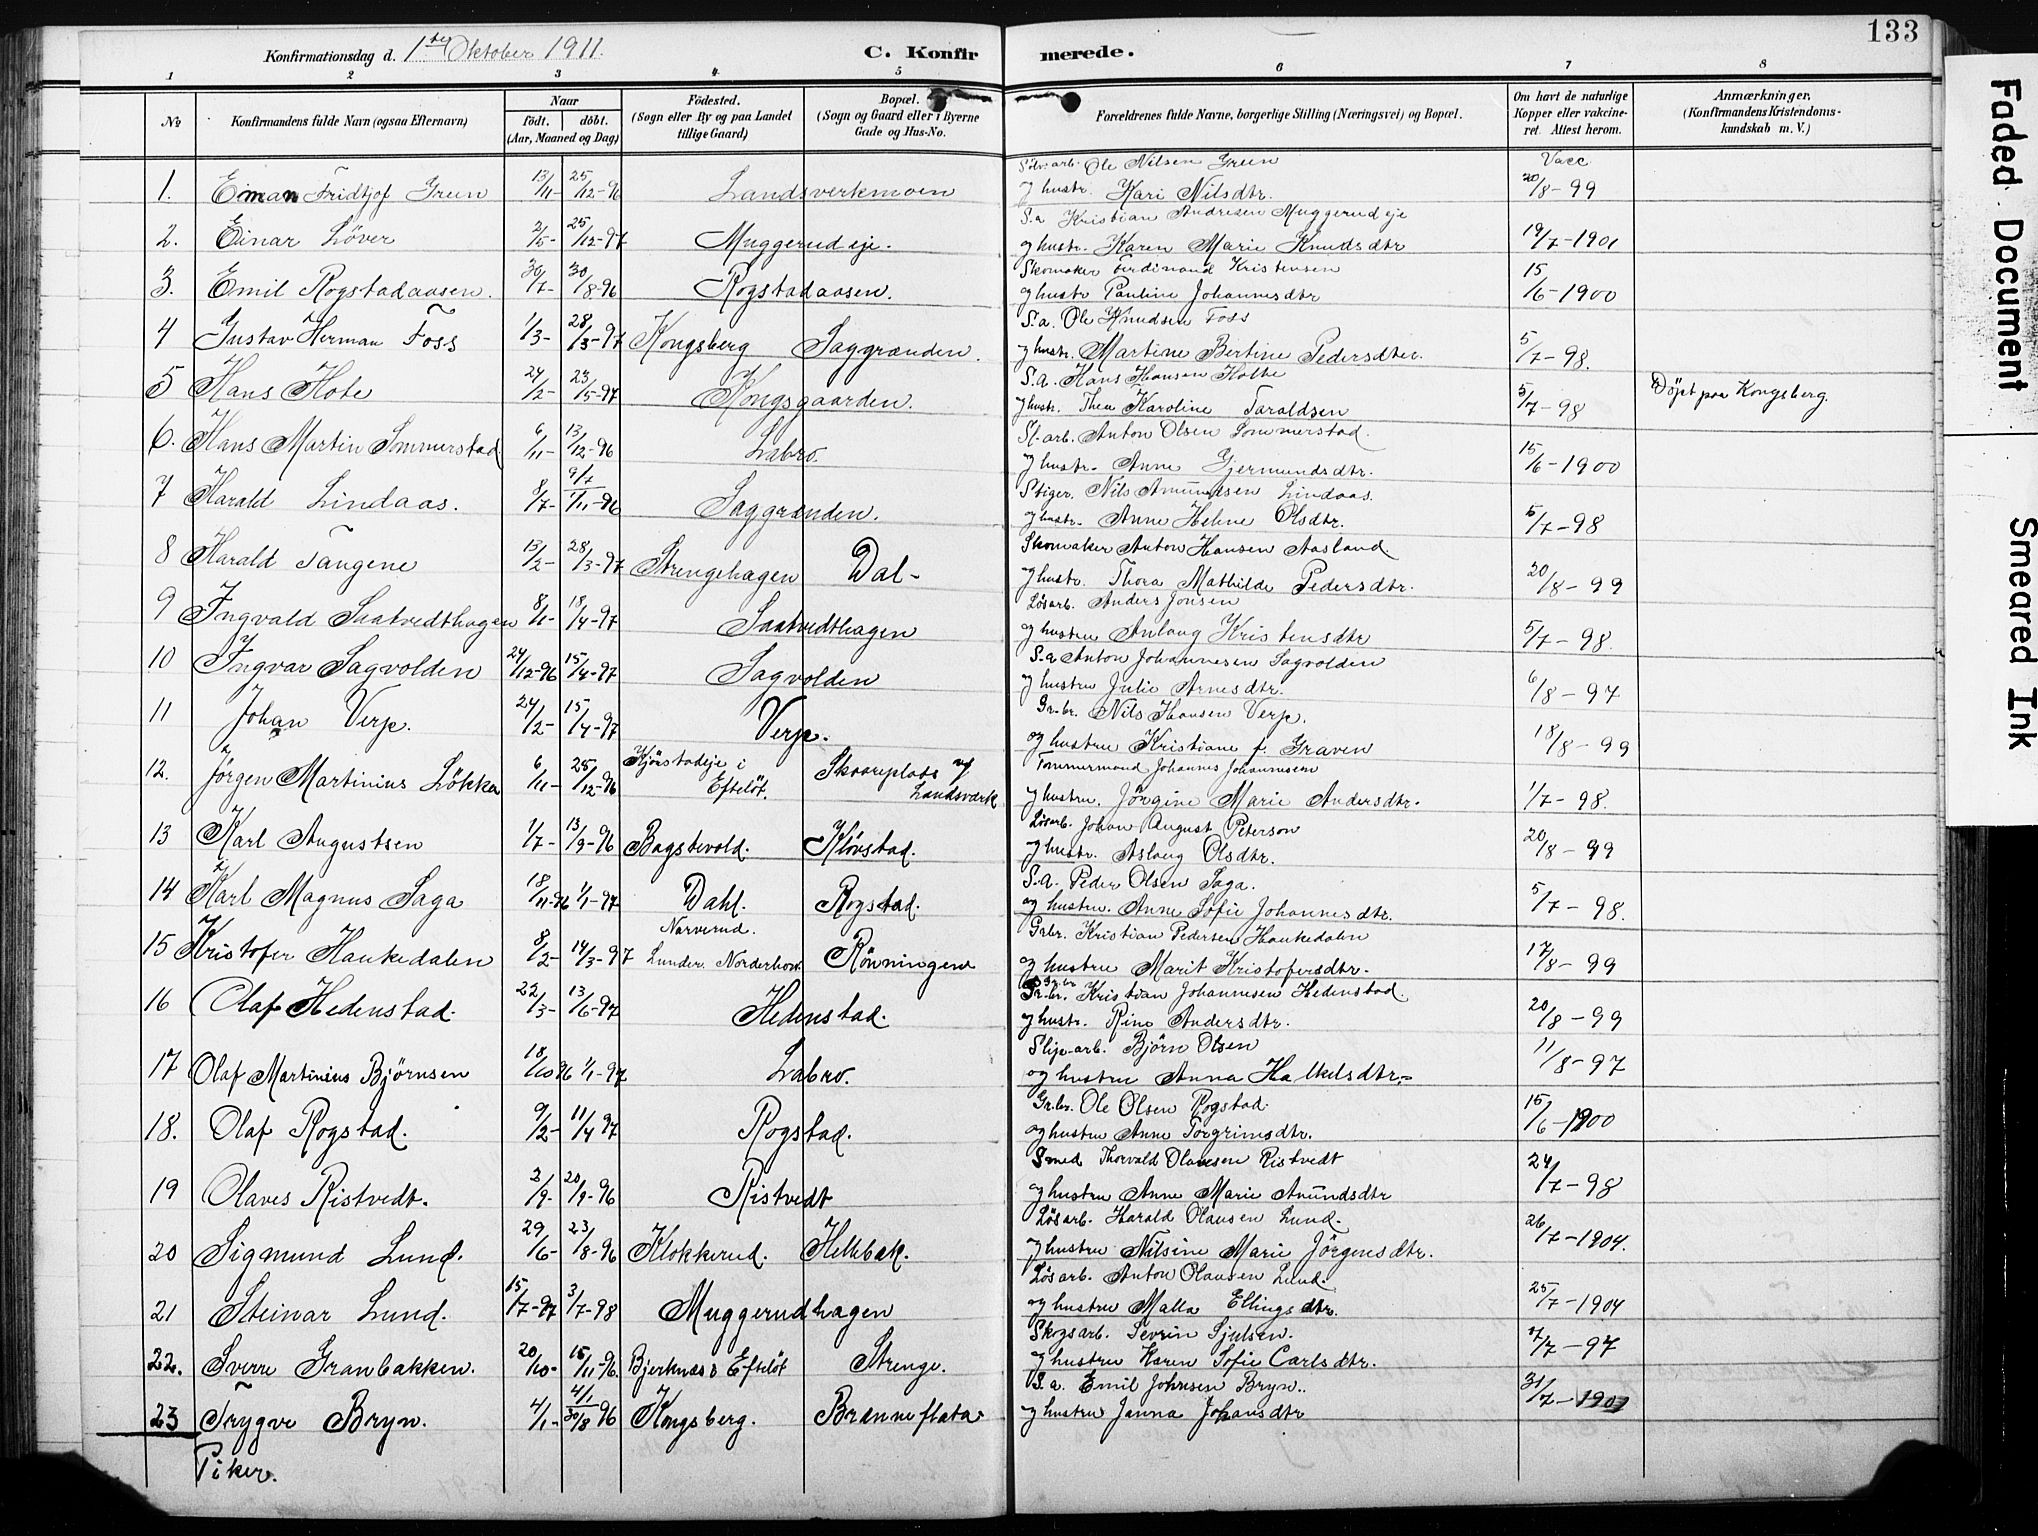 133
Konfirmationsdag d. 1ste Oktober 1911. C. Konfirmerede.
1 2 3 4 5 6 7 8
No
Konfirmandens fulde Navn (ogsaa Efternavn)
Naar
födt. döbt.
(Aar, Maaned og Dag)
Födested.
(Sogn eller By og paa Landet tillige Gaard)
Bopæl.
(Sogn og Gaard eller i Byerne Gade og Hus-No.
Forældrenes fulde Navne, borgerlige Stilling (Næringsvei) og Bopæl.
Om havt de naturlige Kopper eller vaccineret. Attest herom.
Anmærkninger.
(Konfirmandens Kristendomskundskab m. V.)
Sölvarb. Ole Nilsen Green Vacc
1. Einar Fridtjof Green 13/11- 25/12-96 Landsverkmoen og hustr. Kari Nilsdtr. 20/8-99
S.a Kristian Andresen Muggerudeje
2. Einar Löver 2/5- 25/12-97 Muggerudeje. og hustr. Karen Marie Knudsdtr 19/7-1901
Skomaker Ferdinand Kristensen
3. Emil Rogstadaasen. 30/7- 30/8-96 Rogstadaasen. og hustr Pauline Johannesdtr 15/6-1900
S.a. Ole Knudsen Foss
4 Gustav Herman Foss 1/3- 28/3-97 Kongsberg Saggrænden. og hustr. Martine Bertine Pedersdtr. 5/7-98.
S.a. Hans Hansen Holte
5 Hans Hote 24/2- 23/5-97 Kongsgaarden. og hustr. Thea Karoline Taraldsen 5/7-98 Döpt paa Kongsberg
Sl-arb. Anton Olsen Sommerstad.
6. Hans Martin Sommerstad 6/11- 13/12-96 Labro. og hustr. Anne Gjermundsdtr. 15/6-1900
Stiger. Nils Amundsen Lindaas.
7 Harald Lindaas. 8/7- 9/7 1/11-96 Saggrænden. og hustr. Anne Helene Olsdtr. 5/7-98
Skomaker Anton Hansen Aasland
8 Harald Tangene 13/2- 28/3-97 Strengehagen Dal- og hustr. Thora Mathilde Pedersdtr. 20/8-99
Lösarb. Anders Jonsen
9 Ingvald Saatvedthagen 8/1- 18/4-97 Saatvedthagen og hustru Anlaug Kristensdtr 5/7-98.
S.a Anton Johannesen Sagvolden
10 Ingvar Sagvolden 24/12-96 15/4-97 Sagvolden og hustru Julie Arnesdtr. 6/8-97
Gr.br. Nils Hansen Verp.
11 Johan Verp. 24/2- 15/4-97 Verp. og hustru Kristiane f. Graven 18/8-99
Tømmermand Johannes Johannesen
12. Jörgen Martinius Lökka 6/11- 25/12-96 Kjörstadeje i Efteløt. Skaarplads u/ Landsværk og hustru. Jörgine Marie Andersdtr. 1/7-98.
Lösarb. Johan August Peterson
13 Karl Augustsen 1/7- 13/9-96 Bagstevold. Klövstad. og hustr. Aslaug Olsdtr. 20/8-99
S.A. Peder Olsen Saga.
14 Karl Magnus Saga 18/11-96 1/1-97 Dahl. Rogstad. og hustru. Anne Sofie Johannesdtr. 5/7-98.
Grbr. Kristian Pedersen Haukedalen
15 Kristofer Haukedalen 8/2- 14/3-97 Narverud. Lunder. Norderhov. Rönningen og hustru Marit Kristofersdtr. 17/8-99
Gr.br. Kristian Johannesen Hedenstad.
16 Olaf Hedenstad. 22/3- 13/6-97 Hedenstad. og hustr. Rine Andersdtr. 20/8-99
Slip-arb. Björn Olsen
17 Olaf Martinius Björnsen 18/10 96 1/1-97 Labro. og hustru Anna Halkelsdtr. 11/8-97
Gr.br. Ole Olsen Rogstad.
18. Olaf Rogstad. 9/2- 11/4 97 Rogstad. og hustru Anne Torgrimsdtr. 15/6-1900
Smed Thorvald Olavesen Ristvedt
19 Olaves Ristvedt. 2/9- 20/9-96 Ristvedt og hustru Anne Marie Amundsdtr 24/7-98
Lösarb. Harald Olausen Lund.
20 Sigmund Lund. 29/6- 23/8-96 Klokkerud. Hellebæk. og hustru Nilsine Marie Jörgensdtr. 26/7-1904.
Lösarb. Anton Olausen Lund.
21 Steinar Lund. 15/7-97 3/7-98 Muggerudhagen og hustru Malla Ellingsdtr. 25/7-1904
Skogsarb. Sevrin Sjulsen.
22. Sverre Granbakken. 20/10- 15/11-96. Bjerknæs i Efteløt Strenge. og hustru Karen Sofie Carlsdtr. 7/7-97
S.a. Emil Johnsen Bryn.
23 Trygve Bryn. 4/1- 4/1 30/8-96 Kongsberg. Brænneflata og hustru Janna Johansdtr 31/7-1901
Piker.
Faded Document
Smeared Ink